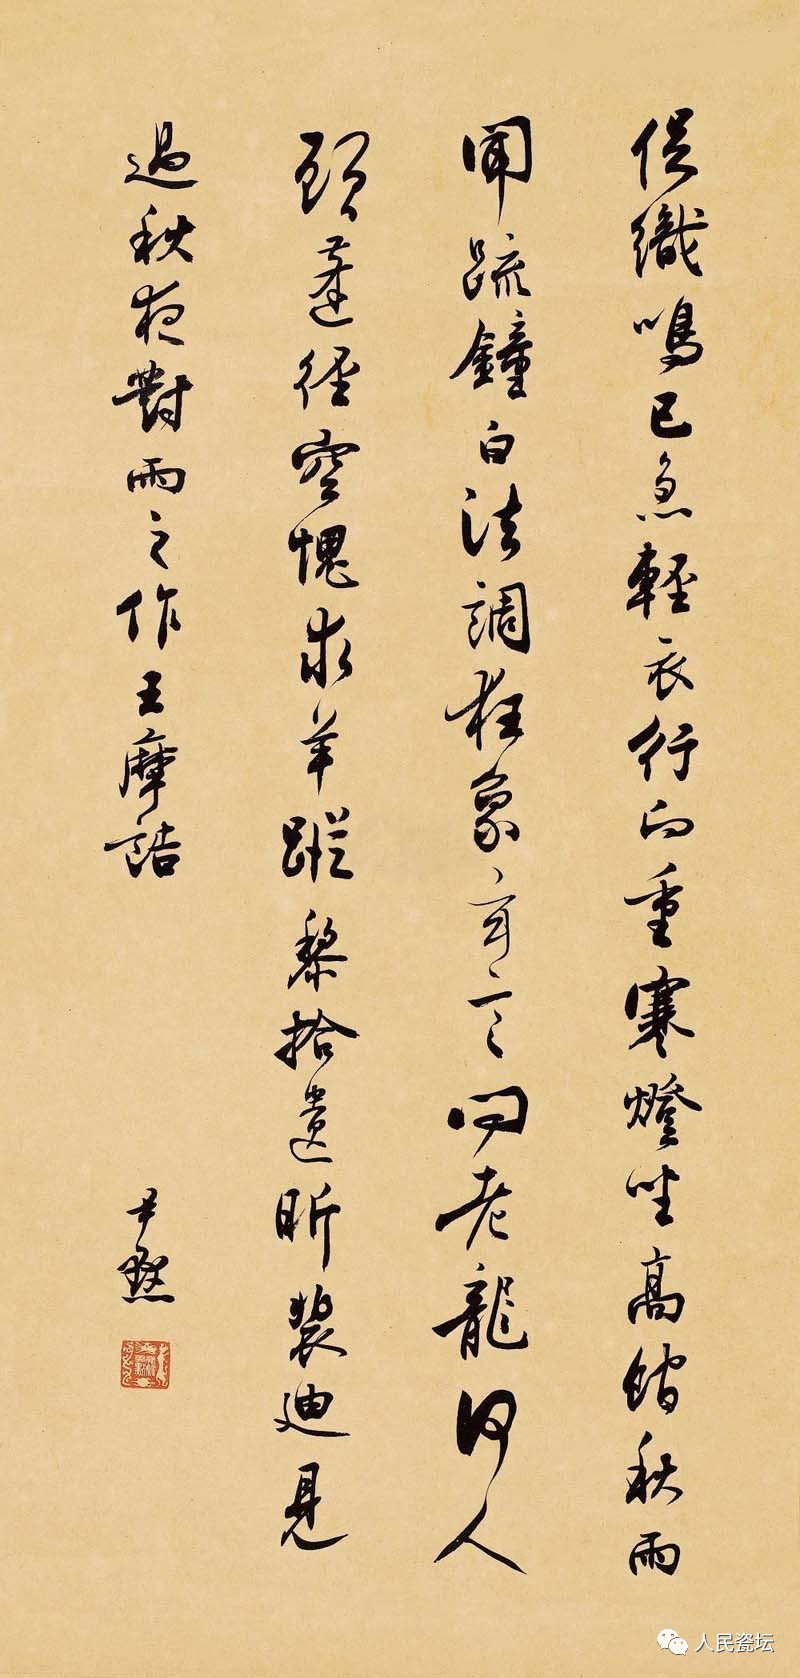 促織鳴已急輕衣行向重寒燈坐高館秋雨
聞疏鐘白法調狂象玄言問老龍何人
顧蓬徑空愧求羊蹤黎拾遺昕裴迪見
過秋夜對雨之作王摩詰
尹默
人民瓷坛